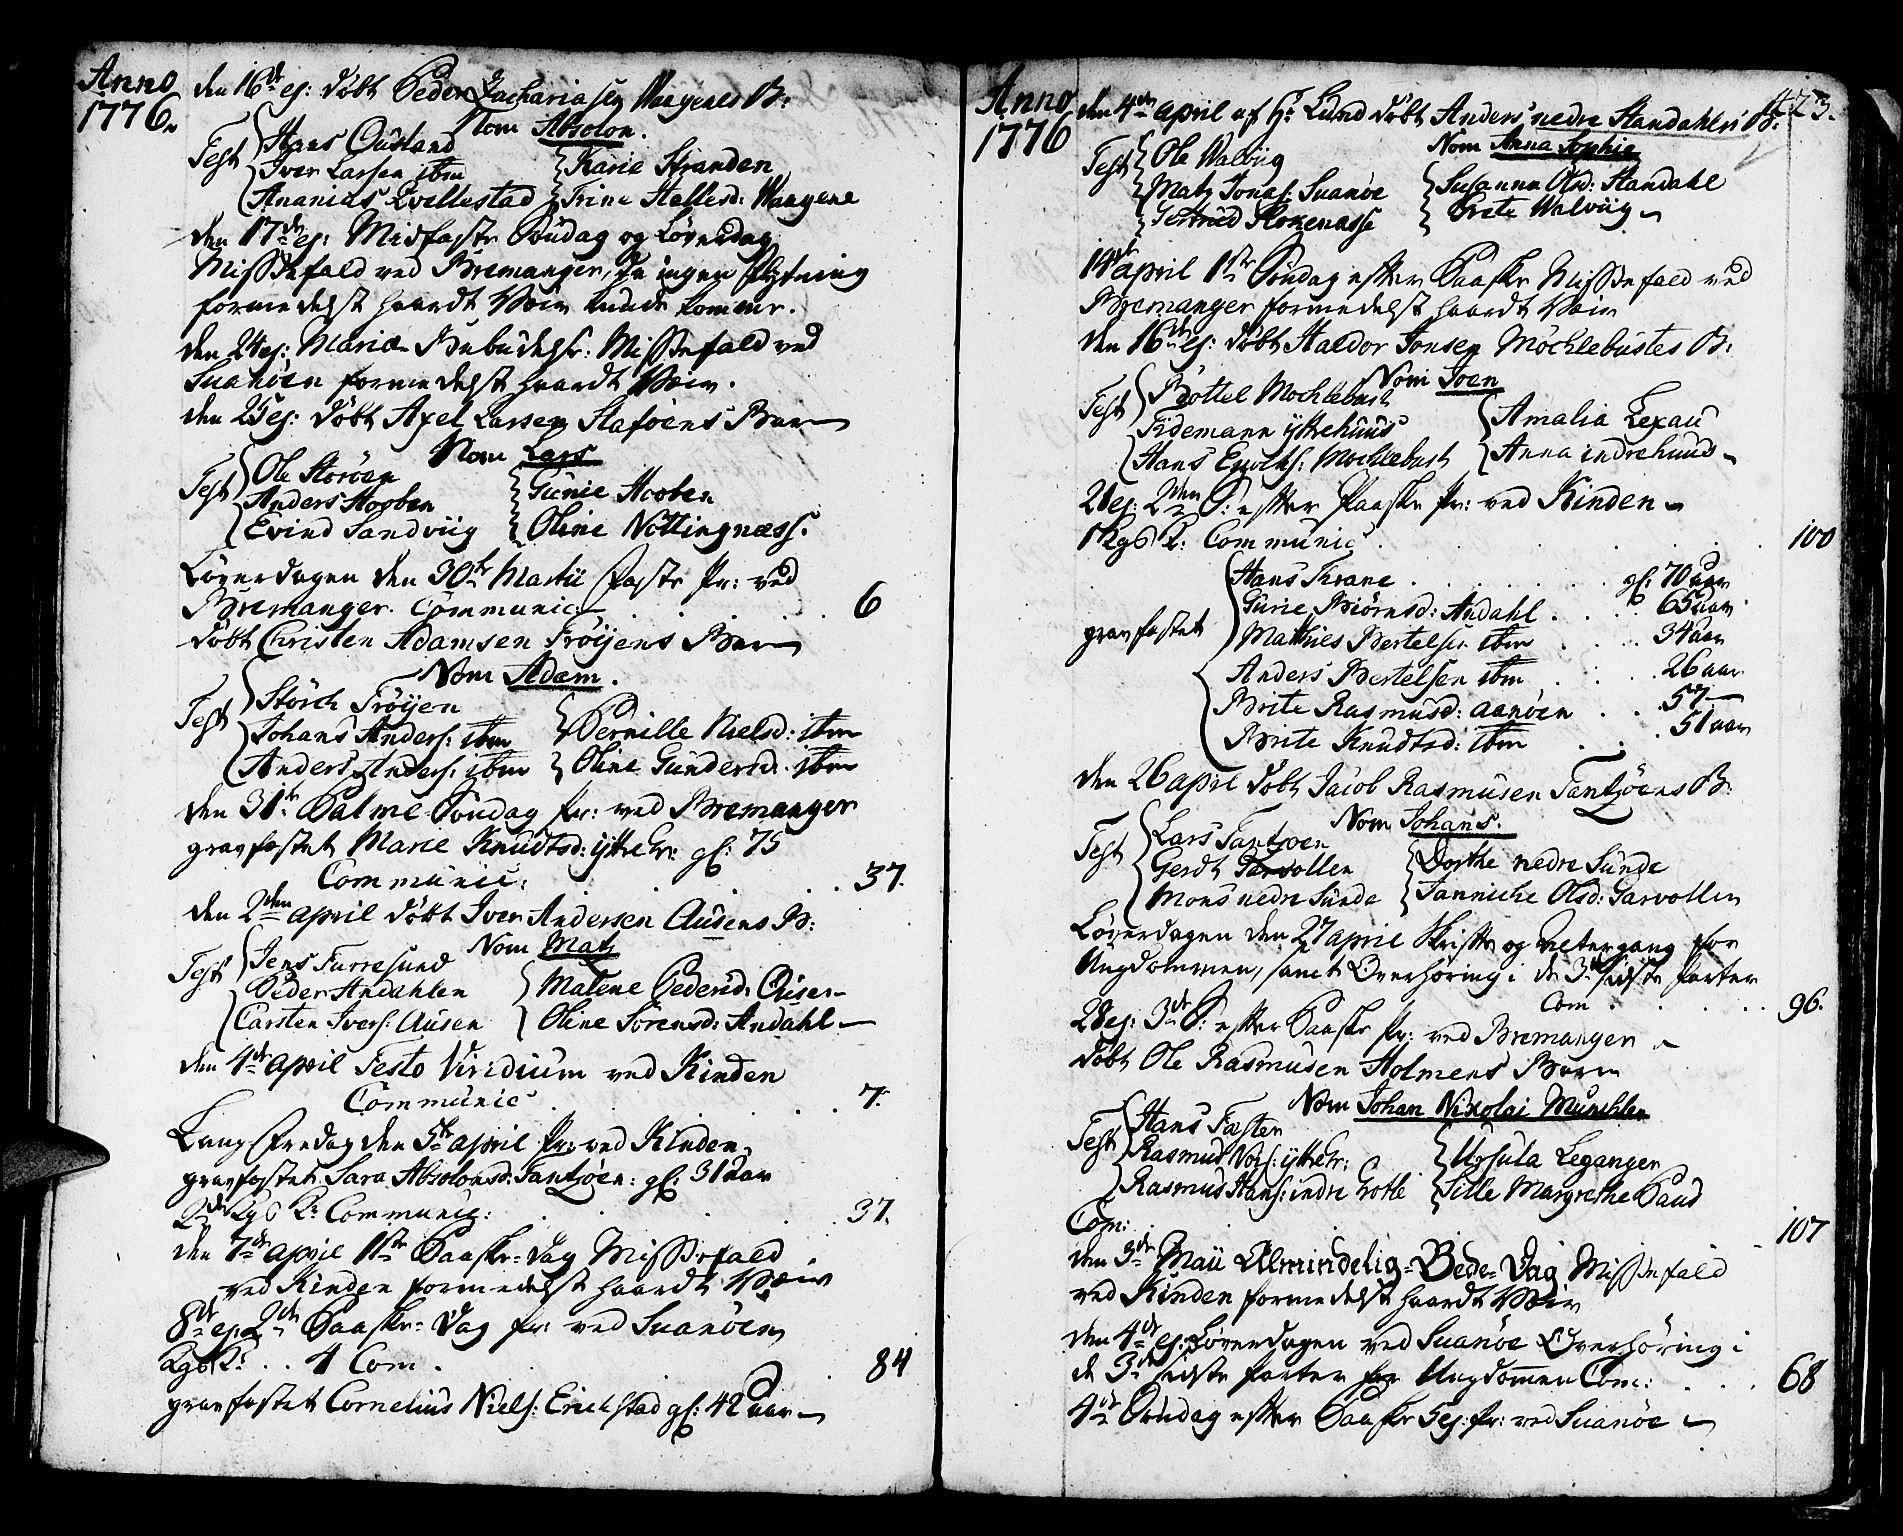 Anno
1776
den 16de ej: döbt Peder Zachariasen Waagenes B:
Nom Absolon.
Test Hans Oustand
Iver Larsen ibm
Karie Stranden
Ananias Qvellestad
Trine Hallesd: Waagene
den 17de ej: Midfaste Söndag og Löverdag
Messefald ved Bremanger, da ingen skytning
formedelst haardt Veir kunde komme.
den 24 ej: Mariæ Bebudelse: Messefald ved
Suanöen formedelst haardt Veir.
den 25 ej: döbt Axel Larsen Staföens Barn
Nom Lars
Test Ole Storöen
Anders Hovden
Gurie Hovden
Evind Sandviig
Oline Nottingnæss.
Löverdagen den 30te Martii Faste Pr: ved
Bremanger. Communic: 6
döbt Christen Adamsen Fröijens Barn
Nom Adam.
Test Störch Fröijen
Johans Anders: ibm
Pernille Nielsd: ibm
Anders Anders: ibm
Oline Gundersd: ibm
den 31te Palme Söndag pr: ved Bremanger
gravfæstet Marie Knudtsd: ytre hr: gl: 75
Communic: 37.
den 2den april döbt Iver Andersen Ausens B:
Nom Matz
Test Jens Furresund
Peder Andahlen
Malene Pedersd: Ousen
Carsten Ivers: Ausen
Oline Sörensd: Andahl
den 4de april Festo Viridium ved Kinden
Communic 7.
Lang Fredag den 5te april Pr: ved Kinden
gravfæstet Sara Absolonsd: Tantzöen: gl: 31 aar
2de Kgs K: Communic: 37.
den 7de april 1ste Paaske-dag Messefald
ved Kinden formedelst haardt Veir
8de ej: 2de Paaske-Dag pr: ved Suanöen
Kgs K: 4 Com. 84
gravfæstet Cornelius Niels: Erichstad gl: 42 aar
Anno
1776
423.
den 4de april af Hr Lund döbt Anders nedre Standahls B:
Nom Anna Sophie
Test Ole Walviig
Matz Jonas: Suanöe
Susanna Olsd: Standahl
Gertrud Klokenæsse
Brite Walviig
14de april 1ste Söndag efter Paaske Messefald ved
Bremanger formedelst haardt Veir
den 16de ej: döbt Haldor Jonsen Möchlebustes B:
Nom Joen
Test Bottel Mochlebust
Tidemann ytrehuus
Amalia Lexau
Hans Enochs: Mochlebust
Anna indrehuus
21 ej: 2den S: efter Paaske Pr: ved Kinden
1 Kgs K: Communic 100
gravfæstet
Hans Thrane gl: 70 aar
Gurie Biörnsd: Andahl 65 aar
Mathies Bertelsen ibm 34 aar
Anders Bertelsen ibm 26 aar
Brite Rasmusd: Aanöen 57
Brite Knudtsd: ibm 51 aar
den 26 april döbt Jacob Rasmusen Tantzöens B:
Nom Johans.
Test Lars Tantzoen
Gerdt Garvollen
Dorthe nedre Sunde
Mons nedre Sunde
Janniche Olsd: Garvollen
Löverdagen den 27 april Skrifte og Altergang for
Ungdommen, samt Overhöring i de 3de sidste parter
Com 96.
28 ej: 3de S: efter Paaske Pr: ved Bremanger
döbt Ole Rasmusen Holmens Barn
Nom Johan Nikolai Munchler
Test Hans Faster
Rasmus Nois: ytre hr:
Ursula Leganger
Rasmus Hans: indre Grotle
Sille Margrethe Paus
Com: 107
den 3de Maii Almindelig-Bede-Dag Messefald
ved Kinden formedelst haardt Veir
den 4de ej: Löverdagen ved Suanöe Overhöring i
de 3de sidste parter for Ungdommen Com: 68
4de Söndag efter Paaske 5 ej: pr: ved Suanöe